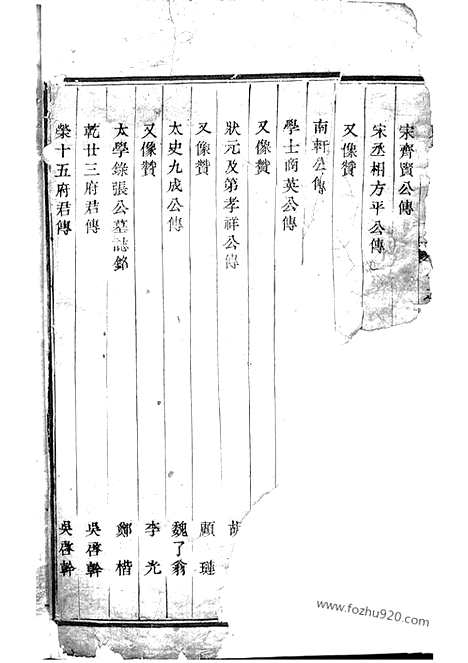 宋齊賢公傳
宋丞相方平公傳
又像贊
南軒公傳
學士商英公傳
又像贊
狀元及第孝祥公傳 胡
又像贊 顧璉
太史九成公傳 魏了翁
又像贊 李光
太學錄張公墓誌銘 鄭楷
乾廿三府君傳 吳啓幹
榮十五府君傳 吳啓幹
www.fozhu920.com